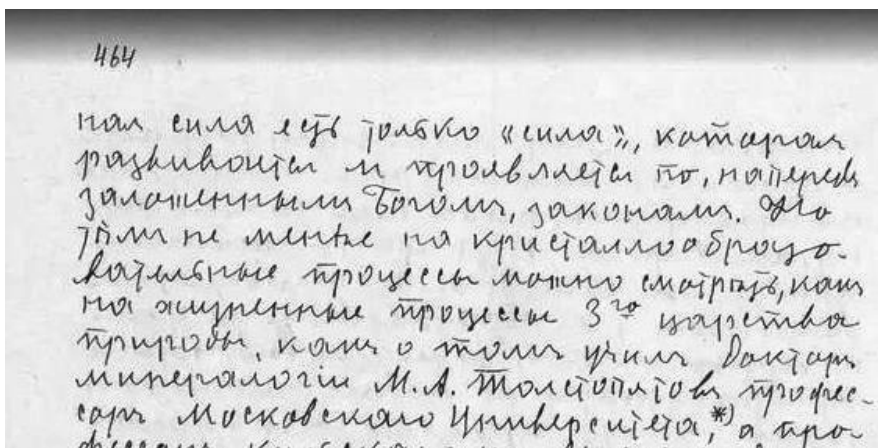 464
ная сила есть только «сила», которая
развивается и проявляется по, напередъ
заложеннымъ Богомъ, законамъ. Но
тѣмъ не менѣе на кристаллообразо-
вательные процессы можно смотрѣть, какъ
на жизненные процессы 3го царства
природы, какъ о томъ училъ Докторъ
минералогіи М. А. Толстопятовъ профес-
соръ Московскаго Университета,*) а про-